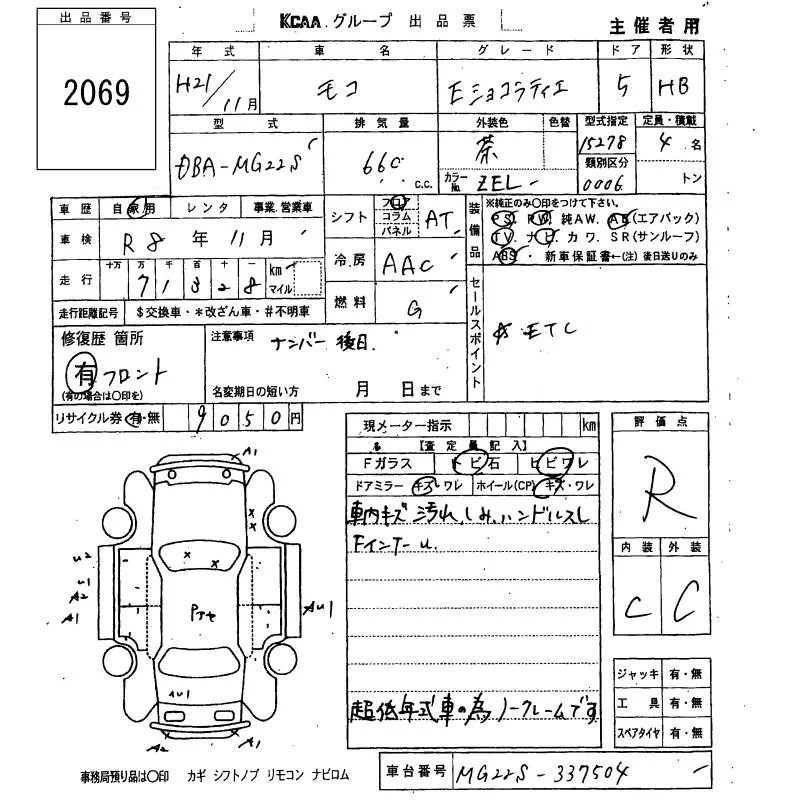 出品番号
2069
KCAA.グループ 出品票
主催者用
年式 車名 グレード ドア 形状
H21/11月 モコ Eショコラティエ 5 HB
型式 排気量 外装色 色替 型式指定 定員・積載
DBA-MG22S 660 c.c. 茶 15278 4名
類別区分
カラーNo. ZEL 0006 トン
車歴 自家用 レンタ 事業.営業車
シフト フロア コラム パネル AT
装備品
※純正のみ〇印をつけて下さい。
PS. PW. 純AW. AB(エアバック)
TV. ナビ. カワ. SR(サンルーフ)
ABS・新車保証書←(注)後日送りのみ
車検 R8年11月
冷房 AAC
走行 十万 万 千 百 十 一 km マイル
71328
燃料 G
走行距離記号 $交換車・*改ざん車・#不明車
セールスポイント
ETC
修復歴 箇所
有 フロント
(有の場合は〇印を)
注意事項 ナンバー後日.
名変期日の短い方 月 日まで
リサイクル券 有・無 9050円
現メーター指示 km
【査定員記入】
Fガラス トビ石 ヒビワレ
ドアミラー キズ・ワレ ホイール(CP) キズ・ワレ
車内キズ 汚れ、しみ、ハンドルスレ
FインナーU.
超低年式車の為ノークレームです
評価点
R
内装 外装
C C
A1
U2
U1
A2
A1
Pアセ
AU1
AU1
A2
A1
ジャッキ 有・無
工具 有・無
スペアタイヤ 有・無
事務局預り品は〇印 カギ シフトノブ リモコン ナビロム
車台番号 MG22S-337504